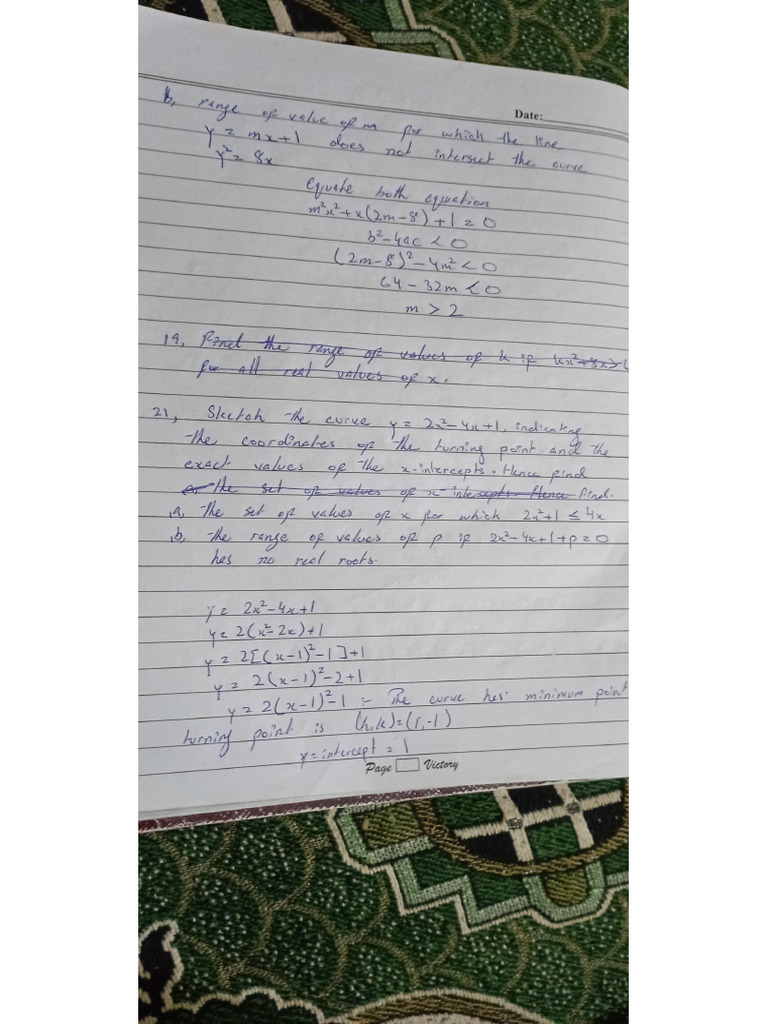 Date:
b, range of value of m for which the line
y = mx+1 does not intersect the curve
y² = 8x
Equate both equation
m²x²+x(2m-8)+1=0
b²-4ac<0
(2m-8)²-4m²<0
64-32m<0
m>2
19, Find the range of values of k if kx²+8x>
for all real values of x.
21, Sketch the curve y = 2x²-4x+1, indicating
the coordinates of the turning point and the
exact values of the x-intercepts. Hence find
the set of values of x intercepts. Hence find.
a, the set of values of x for which 2x²+1 ≤ 4x
b, the range of values of p if 2x²-4x+1+p=0
has no real roots.
y = 2x²-4x+1
y = 2(x²-2x)+1
y = 2[(x-1)²-1]+1
y = 2(x-1)²-2+1
y = 2(x-1)²-1 :- The curve has minimum point
turning point is (h,k)=(1,-1)
y=intercept = 1
Page Victory